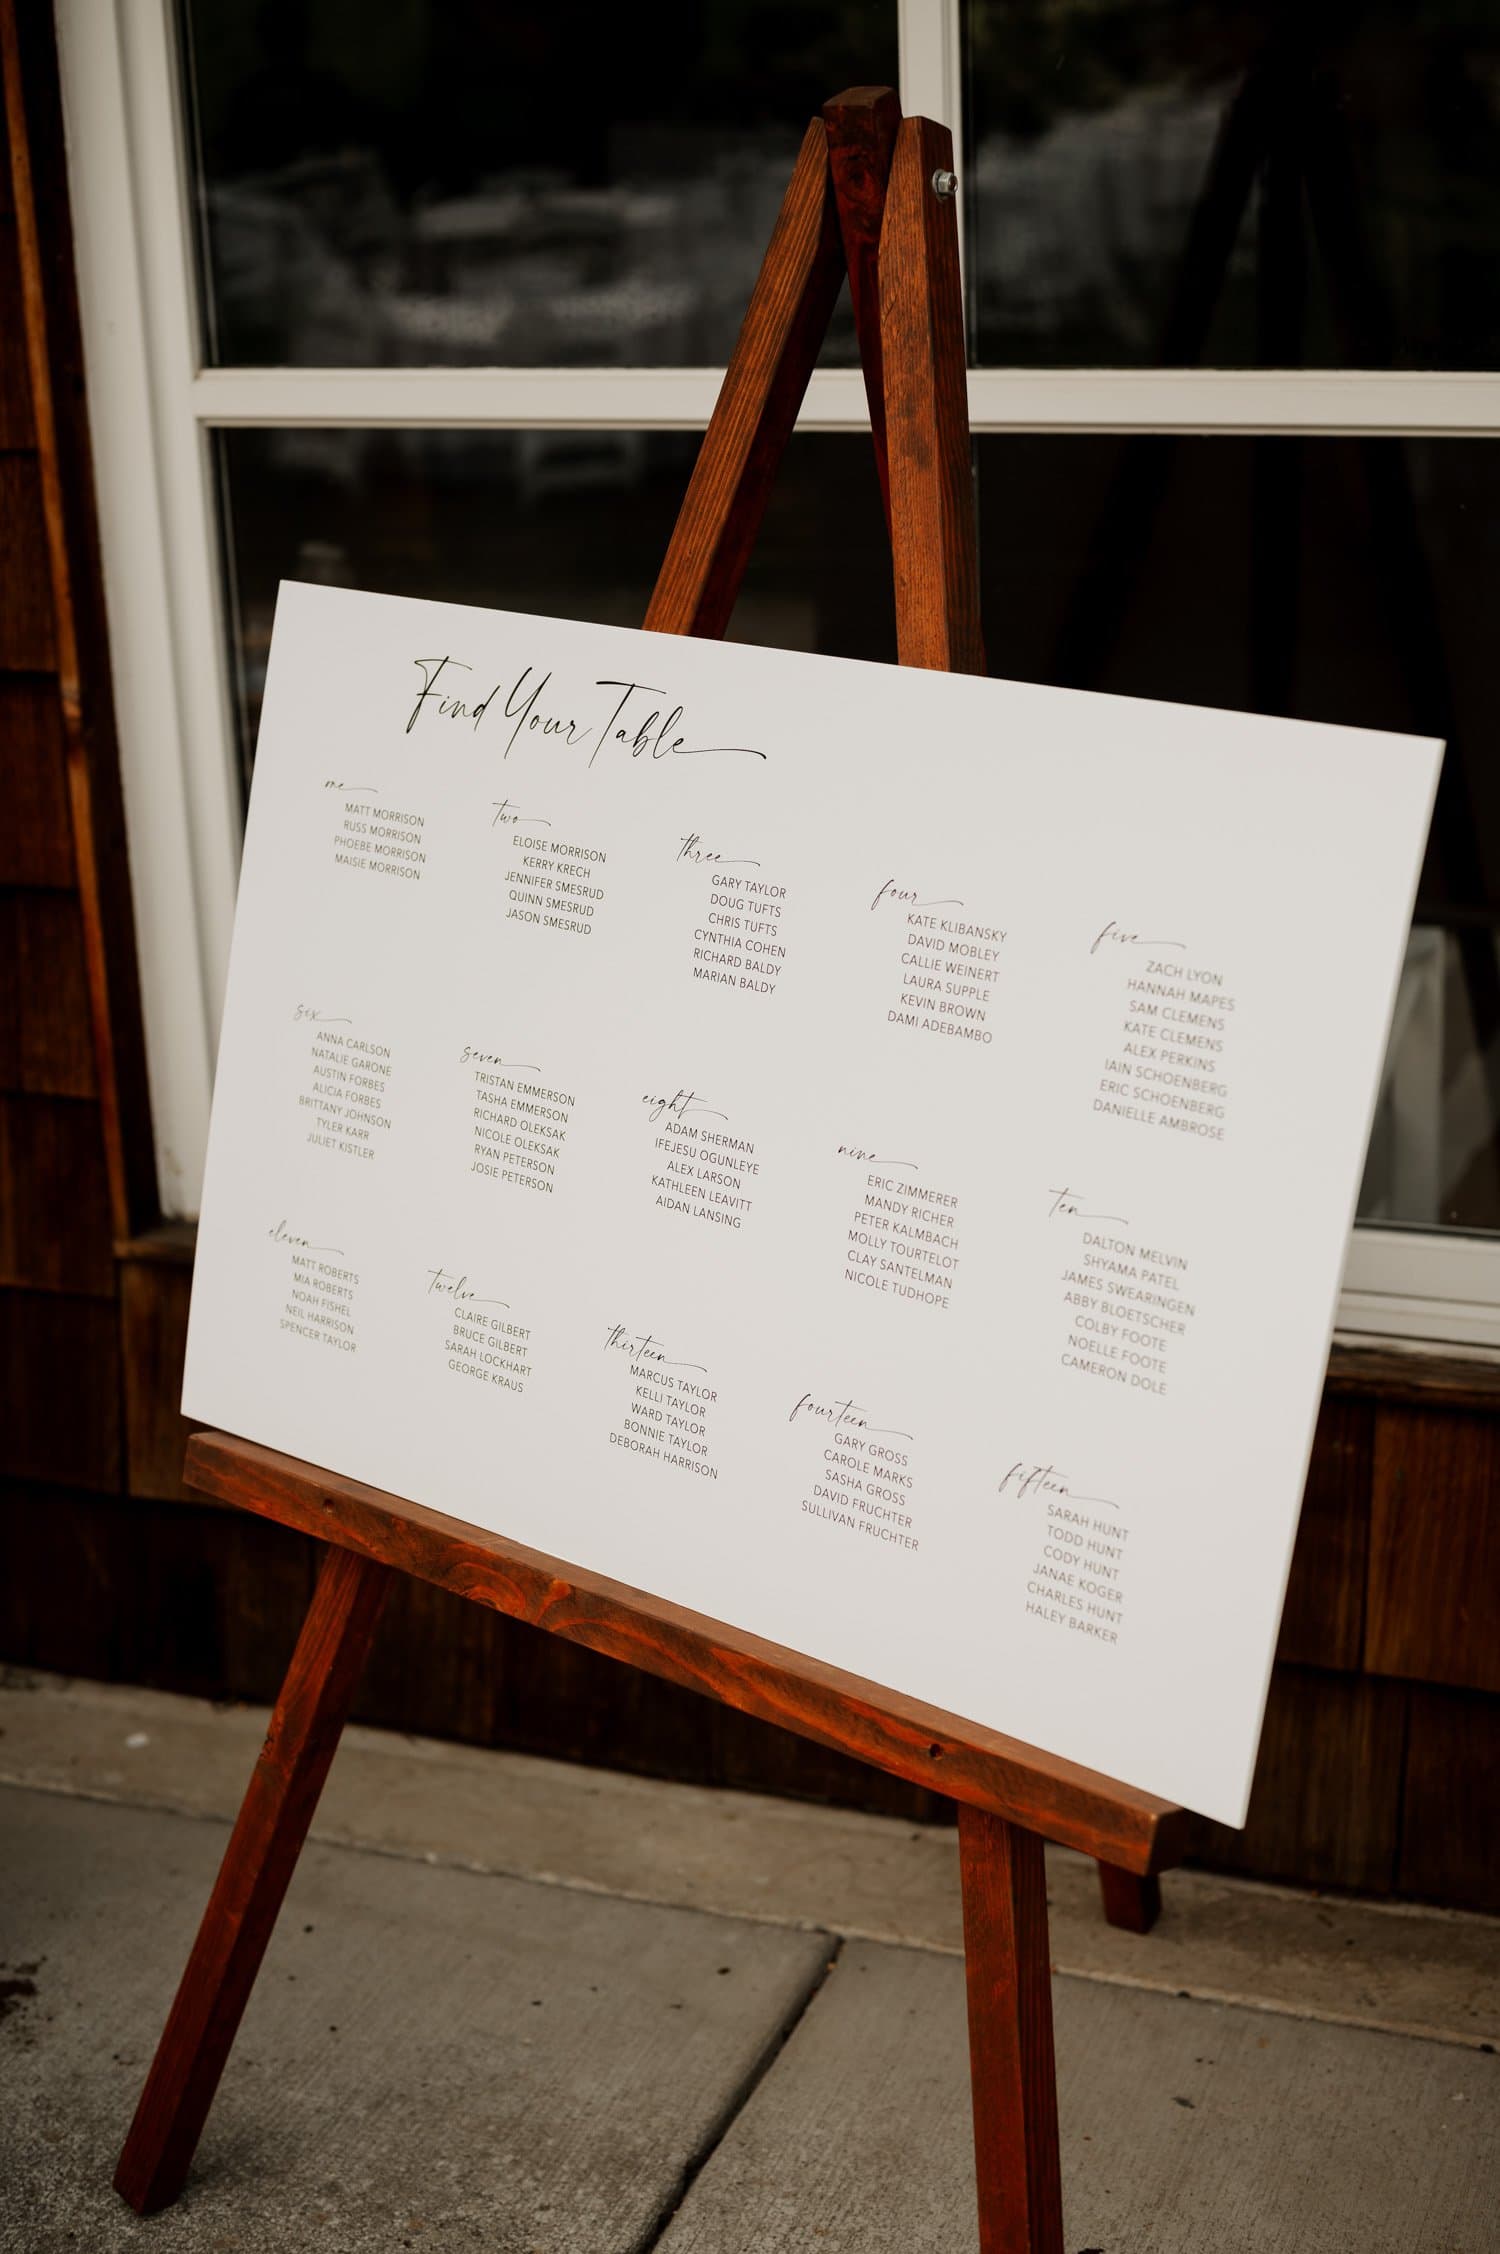 Find Your Table
one
MATT MORRISON
RUSS MORRISON
PHOEBE MORRISON
MAISIE MORRISON
two
ELOISE MORRISON
KERRY KRECH
JENNIFER SMESRUD
QUINN SMESRUD
JASON SMESRUD
three
GARY TAYLOR
DOUG TUFTS
CHRIS TUFTS
CYNTHIA COHEN
RICHARD BALDY
MARIAN BALDY
four
KATE KLIBANSKY
DAVID MOBLEY
CALLIE WEINERT
LAURA SUPPLE
KEVIN BROWN
DAMI ADEBAMBO
five
ZACH LYON
HANNAH MAPES
SAM CLEMENS
KATE CLEMENS
ALEX PERKINS
IAIN SCHOENBERG
ERIC SCHOENBERG
DANIELLE AMBROSE
six
ANNA CARLSON
NATALIE GARONE
AUSTIN FORBES
ALICIA FORBES
BRITTANY JOHNSON
TYLER KARR
JULIET KISTLER
seven
TRISTAN EMMERSON
TASHA EMMERSON
RICHARD OLEKSAK
NICOLE OLEKSAK
RYAN PETERSON
JOSIE PETERSON
eight
ADAM SHERMAN
IFEJESU OGUNLEYE
ALEX LARSON
KATHLEEN LEAVITT
AIDAN LANSING
nine
ERIC ZIMMERER
MANDY RICHER
PETER KALMBACH
MOLLY TOURTELOT
CLAY SANTELMAN
NICOLE TUDHOPE
ten
DALTON MELVIN
SHYAMA PATEL
JAMES SWEARINGEN
ABBY BLOETSCHER
COLBY FOOTE
NOELLE FOOTE
CAMERON DOLE
eleven
MATT ROBERTS
MIA ROBERTS
NOAH FISHEL
NEIL HARRISON
SPENCER TAYLOR
twelve
CLAIRE GILBERT
BRUCE GILBERT
SARAH LOCKHART
GEORGE KRAUS
thirteen
MARCUS TAYLOR
KELLI TAYLOR
WARD TAYLOR
BONNIE TAYLOR
DEBORAH HARRISON
fourteen
GARY GROSS
CAROLE MARKS
SASHA GROSS
DAVID FRUCHTER
SULLIVAN FRUCHTER
fifteen
SARAH HUNT
TODD HUNT
CODY HUNT
JANAE KOGER
CHARLES HUNT
HALEY BARKER